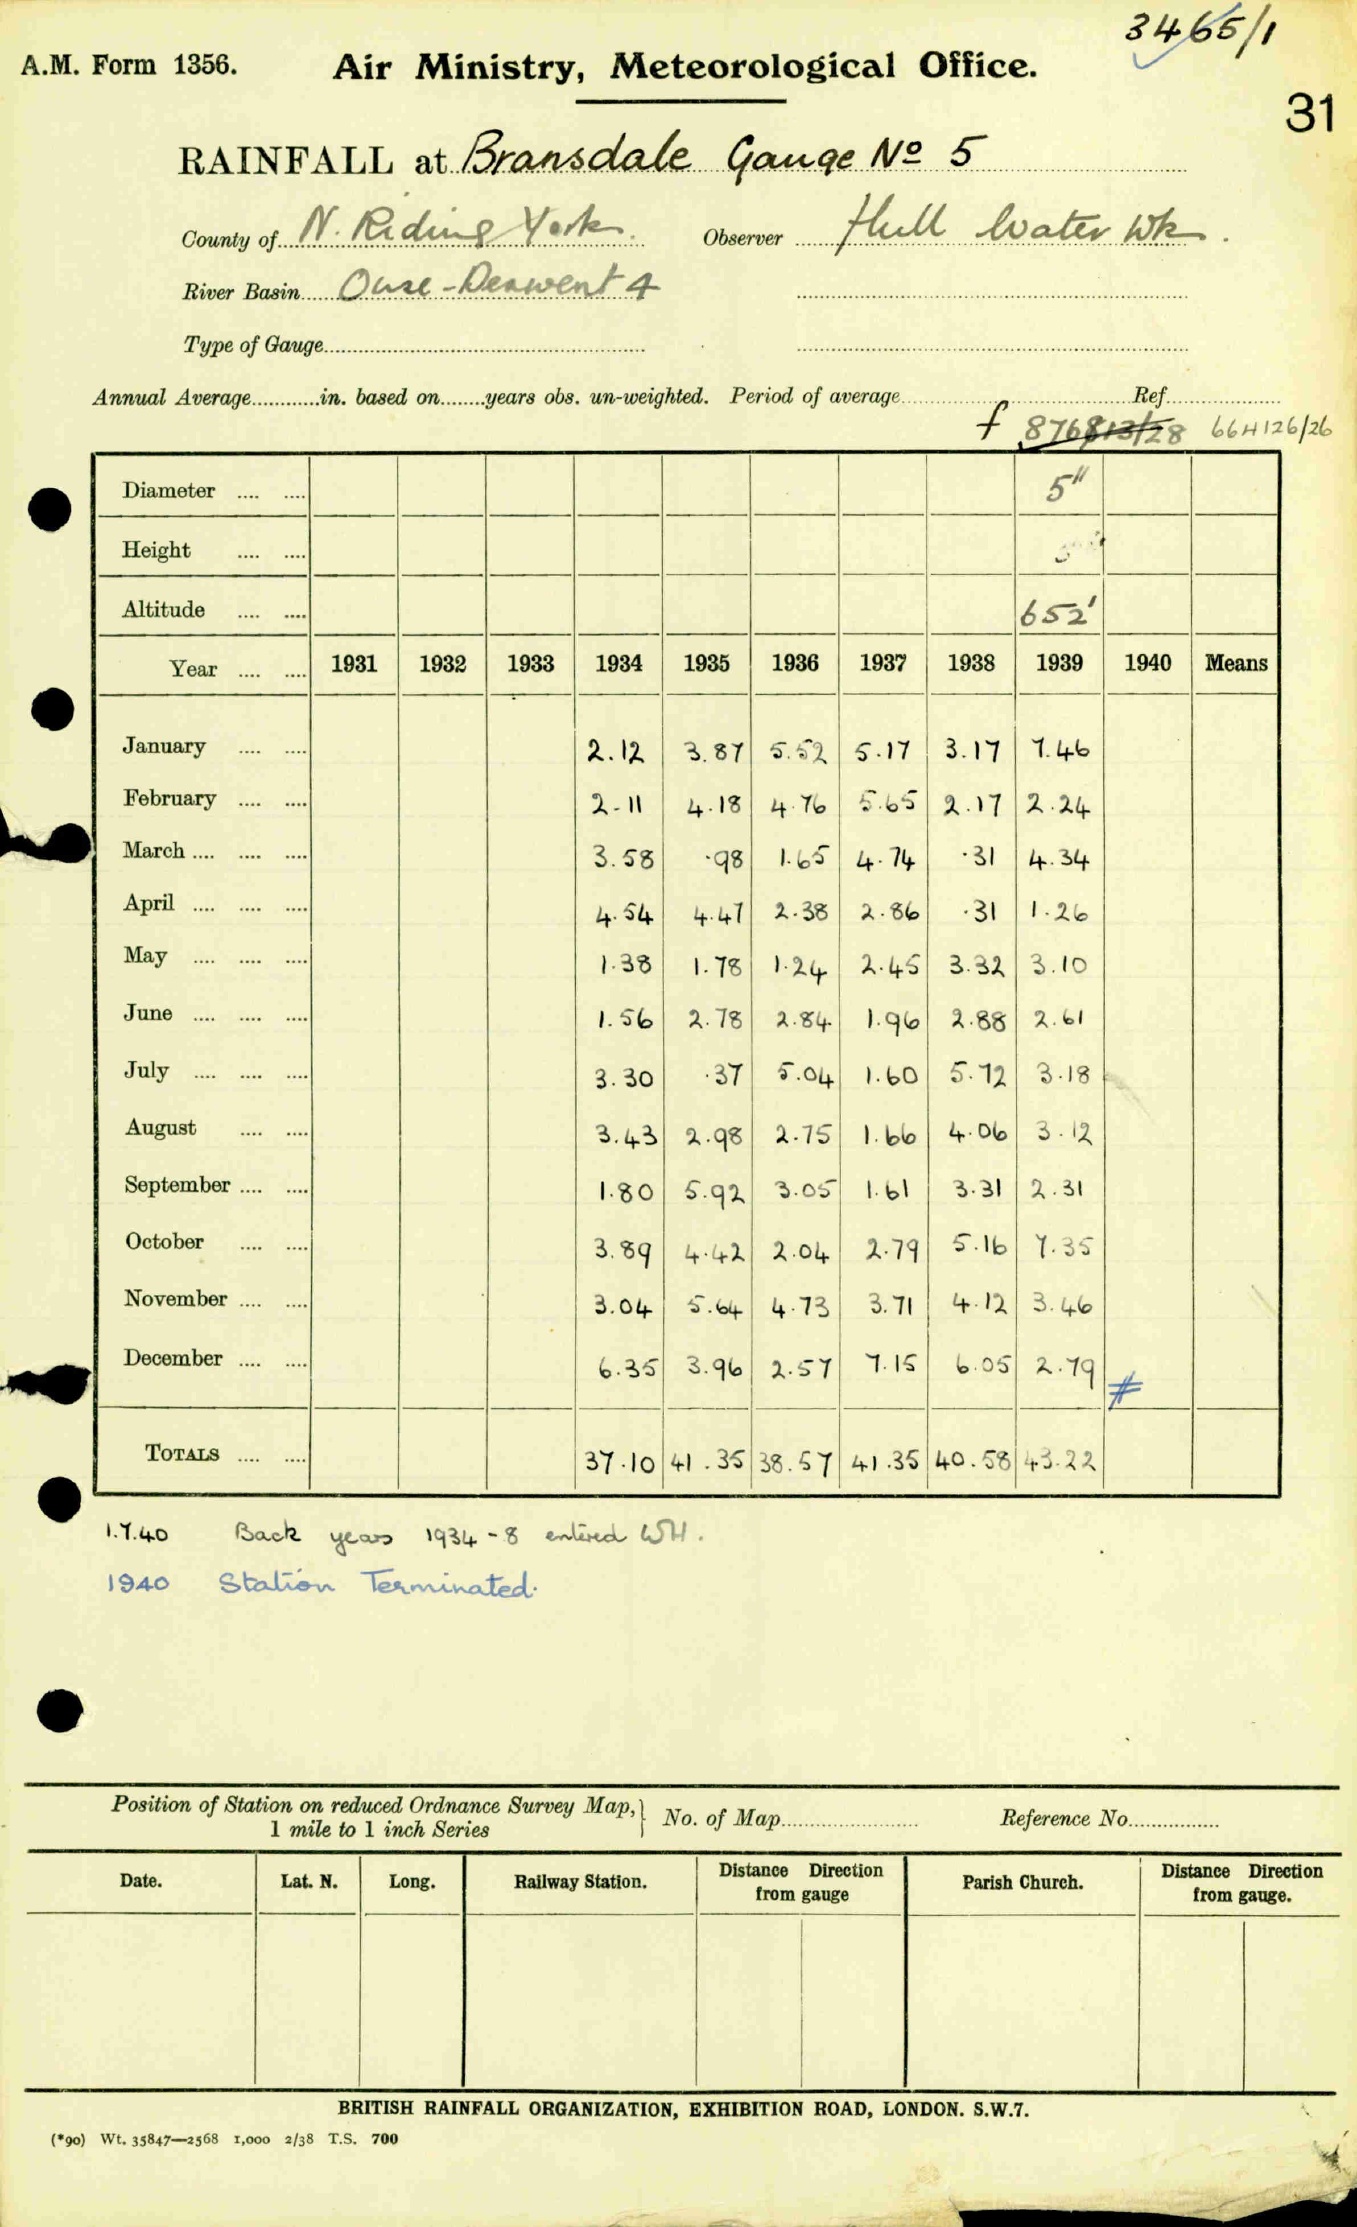 3465/1
A.M. Form 1356. Air Ministry, Meteorological Office.
31
RAINFALL at Bransdale Gauge No 5
County of N. Riding York. Observer Hull Water Wks.
River Basin Ouse-Derwent 4
Type of Gauge
Annual Average in. based on years obs. un-weighted. Period of average Ref.
f 876813/28 664126/26
Diameter 5"
Height
Altitude 652'
Year 1931 1932 1933 1934 1935 1936 1937 1938 1939 1940 Means
January 2.12 3.87 5.52 5.17 3.17 7.46
February 2.11 4.18 4.76 5.65 2.17 2.24
March 3.58 .98 1.65 4.74 .31 4.34
April 4.54 4.47 2.38 2.86 .31 1.26
May 1.38 1.78 1.24 2.45 3.32 3.10
June 1.56 2.78 2.84 1.96 2.88 2.61
July 3.30 .37 5.04 1.60 5.72 3.18
August 3.43 2.98 2.75 1.66 4.06 3.12
September 1.80 5.92 3.05 1.61 3.31 2.31
October 3.89 4.42 2.04 2.79 5.16 7.35
November 3.04 5.64 4.73 3.71 4.12 3.46
December 6.35 3.96 2.57 7.15 6.05 2.79 #
TOTALS 37.10 41.35 38.57 41.35 40.58 43.22
1.7.40 Back years 1934-8 entered WH.
1940 Station Terminated.
Position of Station on reduced Ordnance Survey Map, } No. of Map Reference No.
1 mile to 1 inch Series
Date. Lat. N. Long. Railway Station. Distance Direction from gauge Parish Church. Distance Direction from gauge.
BRITISH RAINFALL ORGANIZATION, EXHIBITION ROAD, LONDON. S.W.7.
(*90) Wt. 35847—2568 1,000 2/38 T.S. 700